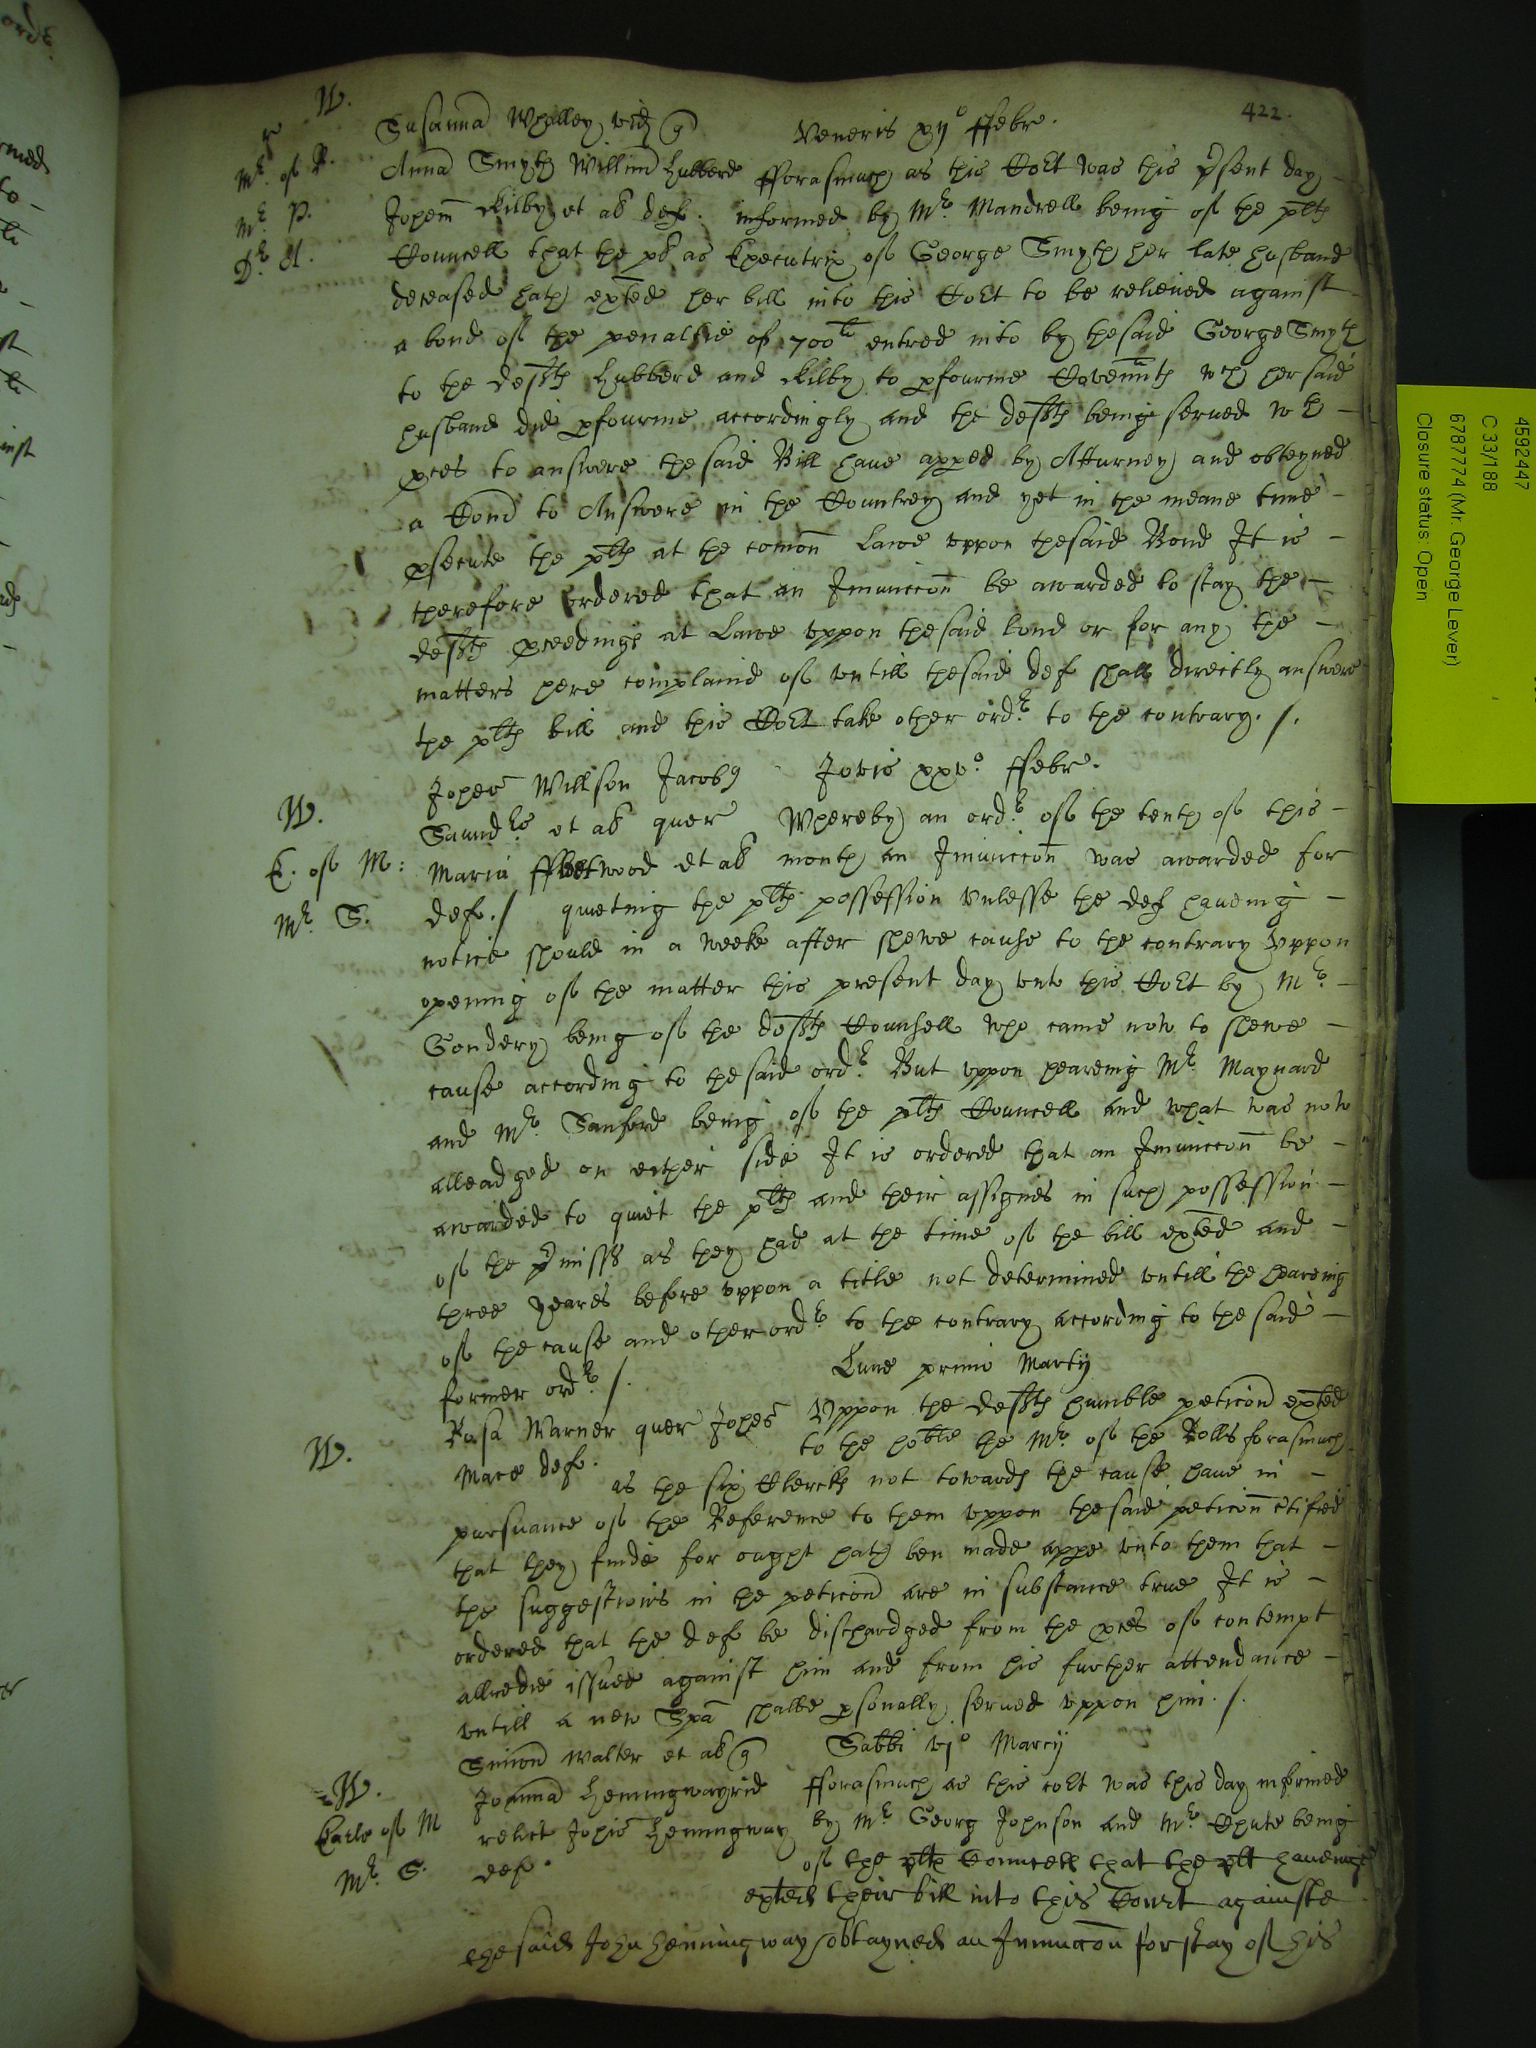 422.
W.
Susanna Whalley vid q
Veneris xij° ffebr.
Mr. of R.
Anna Smyth Willim Hubberd fforasmuch as this Cort was this psent day
Mr. P.
Johem Kilby et al def. informed by Mr. Mandrell being of the plts
Dr. A.
Councell that the pl as Executrix of George Smyth her late husband
deceased hath exted her bill into this Cort to be relieued against
a bond of the penaltie of 700li entred into by the said George Smyth
to the defts Hubberd and Kilby to pfourme Covennts wch her said
husband did pfourme accordingly and the defts being serued wth
pces to answere the said Bill haue apped by Atturney and obteyned
a Comd to Answere in the Countrey and yet in the meane time
psecute the plts at the comon Lawe vppon the said Bond It is
therefore ordered that an Iniunccon be awarded to stay the
defts pceedings at Lawe vppon the said bond or for any the
matters here complaind of vntill the said def shall directly answere
the plts bill and this Cort take other ordr. to the contrary. /.
Johes Willson Jacob9
Jovis xxv° ffebr.
W.
Saundrs et al quer Whereby an ordr. of the tenth of this
E. of M:
Maria ffleetwood et al month an Iniunccon was awarded for
Mr. S.
def. / quieting the plts possession vnlesse the def haueing
notice should in a weeke after shewe cause to the contrary Vppon
opening of the matter this present day vnto this Cort by Mr.
Gondery being of the defts Counsell who came now to shewe
cause according to the said ordr. But vppon heareing Mr Maynard
and Mr. Sanford being of the plts Councell and what was now
alleadged on either side It is ordered that an Iniunccon be
awarded to quiet the plts and their assignes in such possession
of the pmisss as they had at the time of the bill exted and
three yeares before vppon a title not determined vntill the heareing
of the cause and other ordr. to the contrary according to the said
former ordr. /.
Lune primo Martij
W.
Rosa Warner quer Johes Vppon the defts humble peticon exted
Mace def. to the hoble the Mr. of the Rolls forasmuch
as the six Clercks not towards the cause haue in
pursuance of the Reference to them vppon the said peticon ctified
that they finde for ought hath ben made appe vnto them that
the suggestions in the peticon are in substance true It is
ordered that the def be dischardged from the pces of contempt
allredie issued against him and from his further attendance
vntill a new Spa shalbe psonally serued vppon him. /.
Simon Walter et al q
Sabbi vj° Marcij
W.
Joanna Hemingway vid fforasmuch as this cort was this day informed
Earle of M
relict Johis Hemingway by Mr Georg Johnson and Mr. Chute being
Mr. S.
def. of the plts Councell that the plt haueinge
exted their bill into this Court againste
the said John Hemingway obtayned an Iniunccon for stay of his
4592447
C 33/188
6787774 (Mr. George Lever)
Closure status: Open